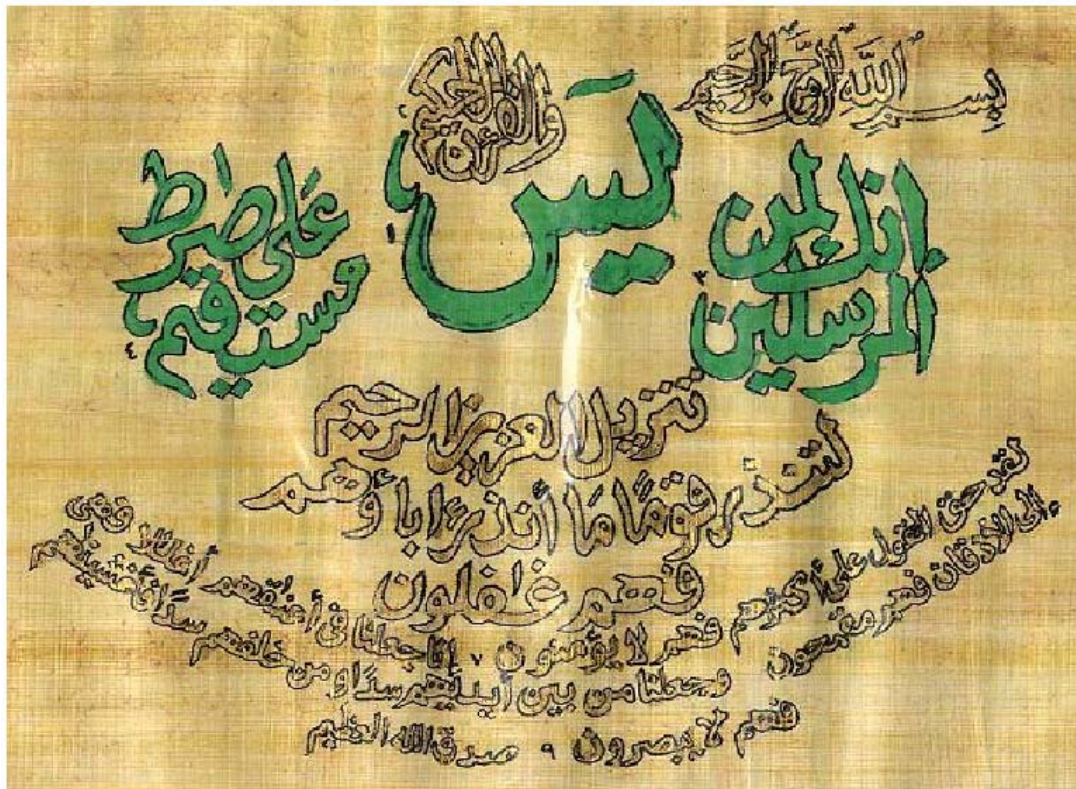 بسم الله الرحمن الرحيم
يسَ ١
والقرءان الحكيم ٢
إنك لمن
المرسلين ٣
على صرط
مستقيم ٤
تنزيل العزيز الرحيم
لتنذر قومًا مَا أنذر ءاباؤهم
فهم غفلون
لقد حق القول على أكثرهم فهم لا يؤمنون ٧ إنا جعلنا في أعنقهم أغللا فهى
إلى الاذقان فهم مقمحون وجعلنا من بين أيديهم سدًا ومن خلفهم سدًا فأغشينهم
فهم لا يبصرون ٩ صدق الله العظيم